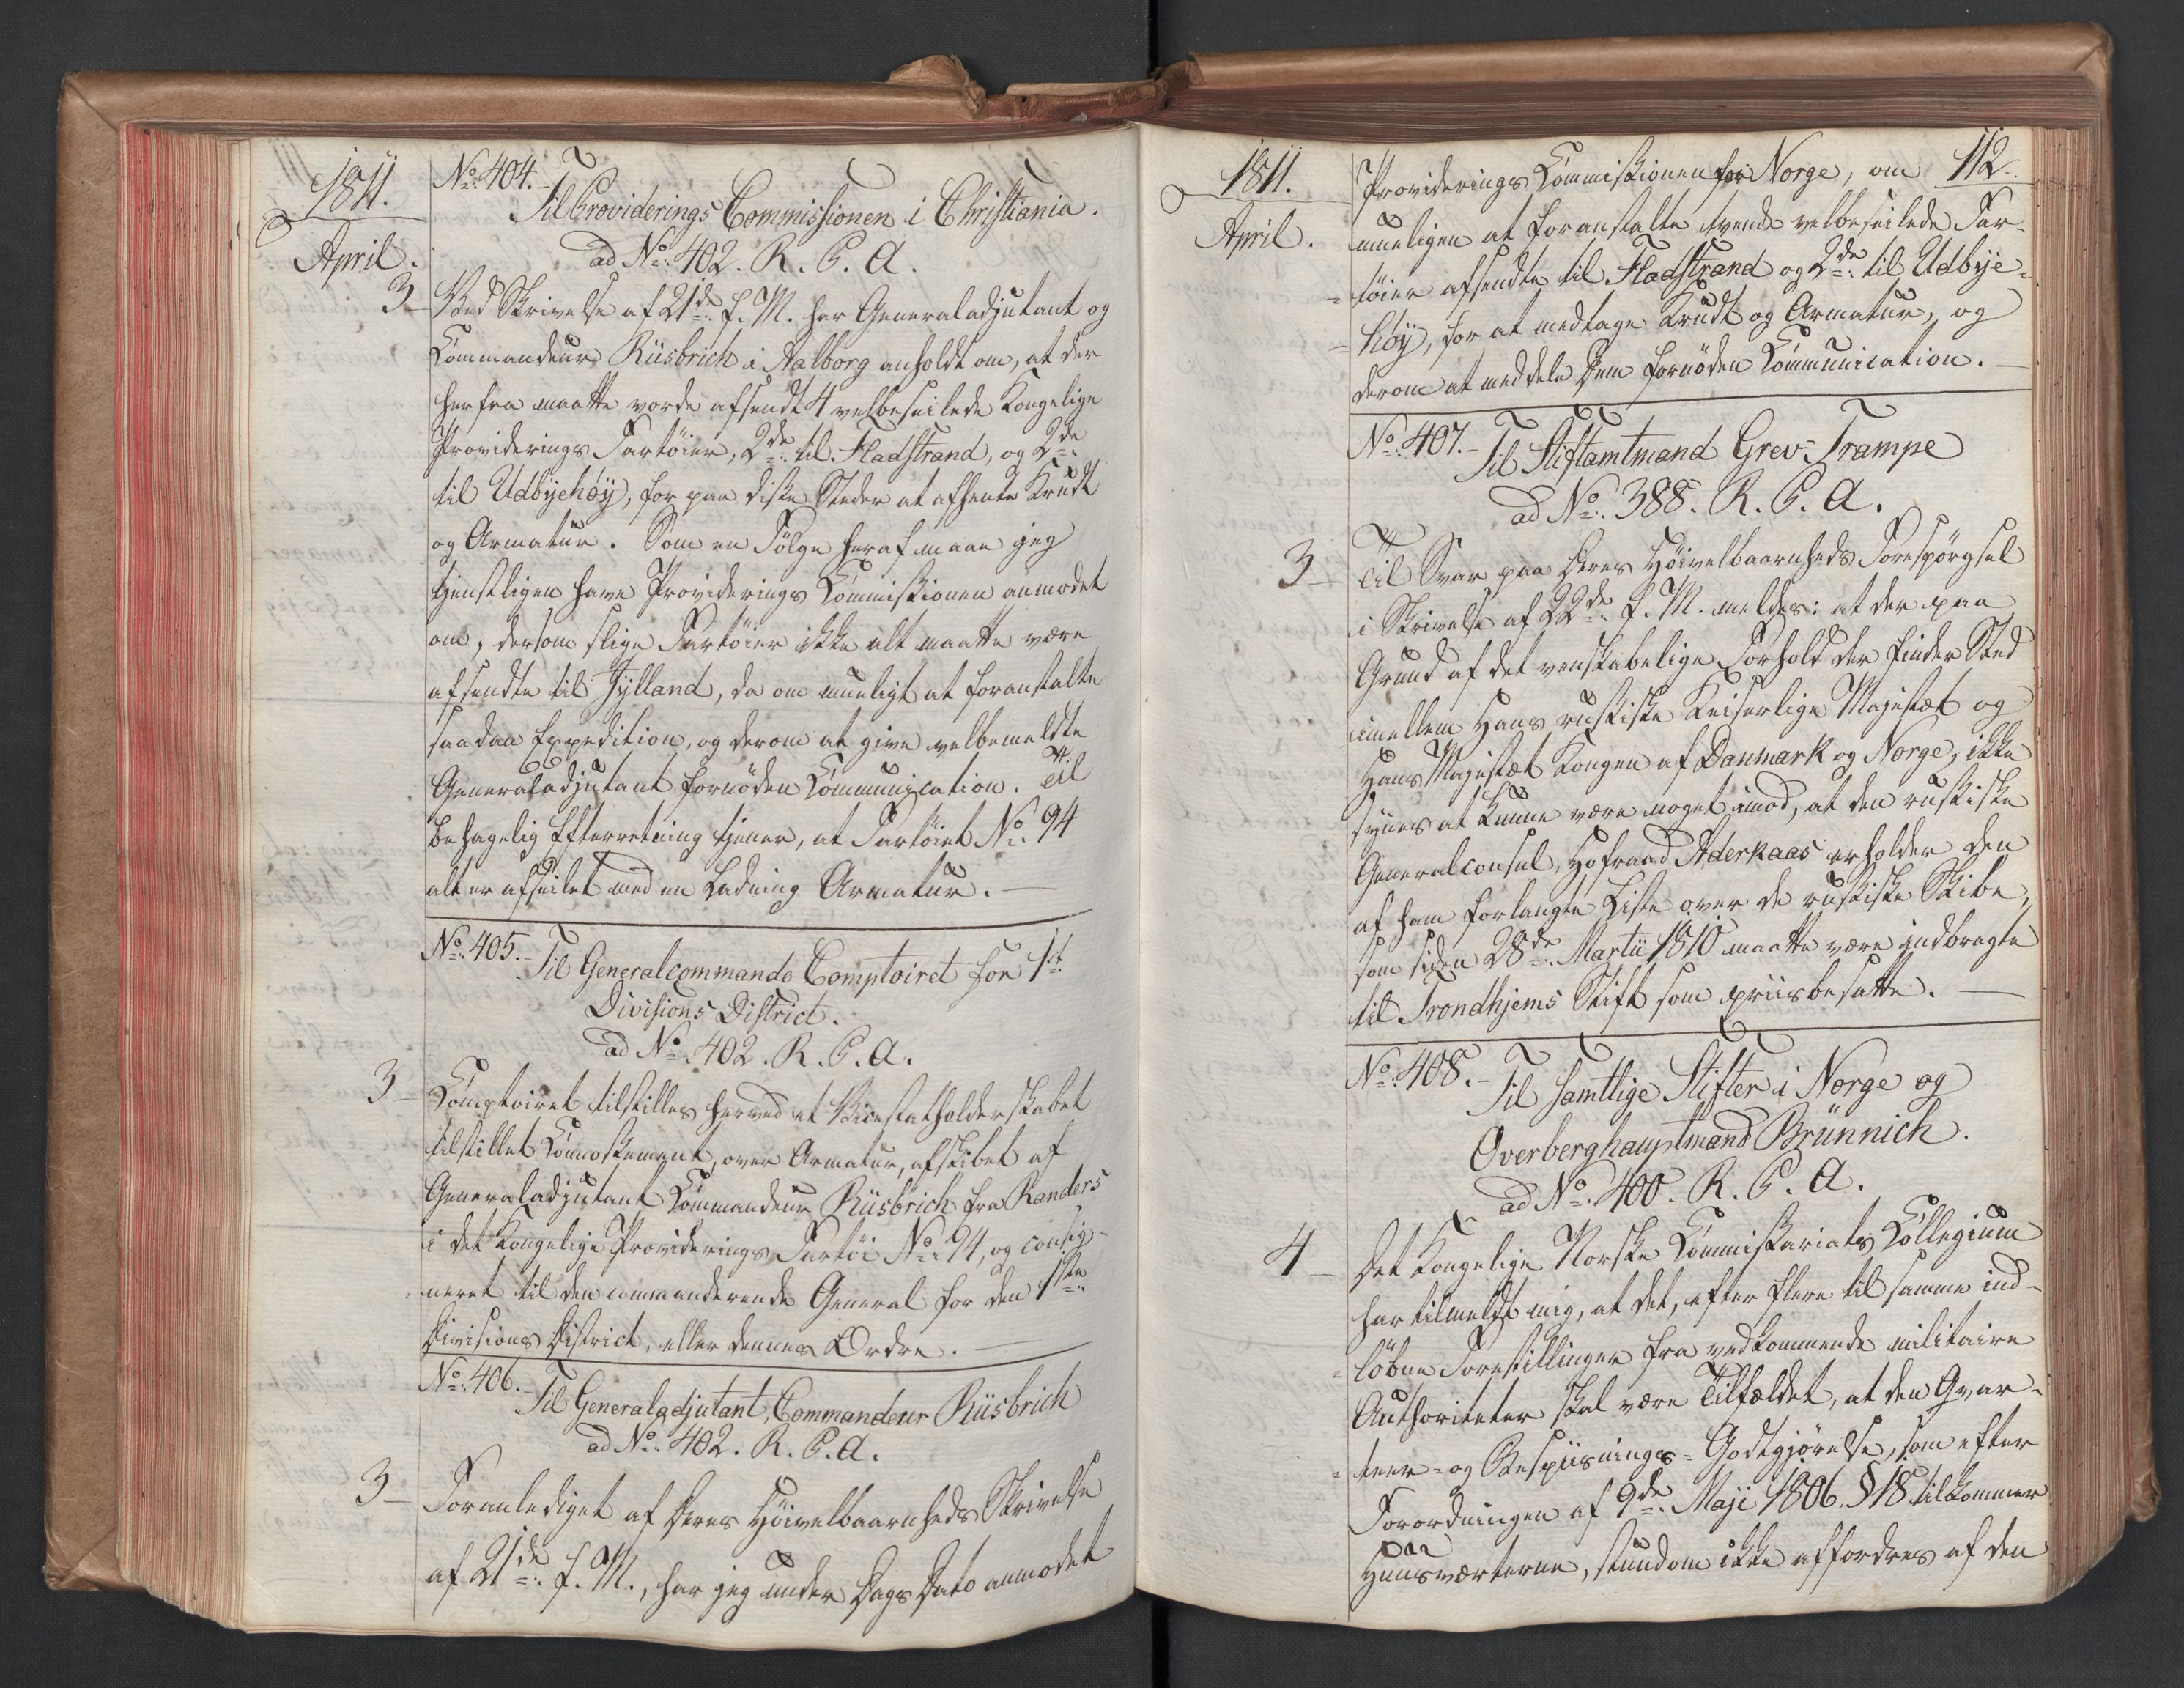 1811.
April.
No: 404.
Til Providerings Commissionen i Christiania.
ad No: 402. R. C. A.
3 Ved Skrivelse af 21de f. M. har Generaladjutant og
Commandeur Rüsbrich i Aalborg anholdt om, at der
herfra maatte vorde afsendt 4 velbeseilede Kongelige
Providerings Fartöier, 2de til Fladstrand, og 2de
til Udbyehöy, for paa diske Steder at afhente Krudt
og Armatur. Som en Fölge heraf maae jeg
tjenstligen have Providerings Commissionen anmodet
om, dersom slige Fartöier ikke alt maatte være
afsendte til Jylland, da om mueligt at foranstalte
saadan Expedition, og derom at give velbemeldte
Generaladjutant fornöden Communication. Til
behagelig Efterretning tjener, at Fartöiet No: 94
alt er afseilet med en Ladning Armatur.
No: 405.
Til Generalcommando Comptoiret for 1ste
Divisions District.
ad No: 402. R. C. A.
3 Comptoiret tilstilles herved et Vicestatholderskabet
tilstillet Connossement, over Armatur, afskibet af
Generaladjutant Commandeur Rüsbrich fra Randers
i det Kongelige Providerings Fartöi No: 94, og consig-
neret til den commanderende General for den 1ste
Divisions District, eller dennes Ordre.
No: 406.
Til Generaladjutant, Commandeur Rüsbrich
ad No: 402. R. C. A.
3 Foranlediget af Deres Höivelbaarenheds Skrivelse
af 21de f. M., har jeg under Dags Dato anmodet
1811.
April.
112.
Providerings Commissionen for Norge, om
mueligen at foranstalte tvende velbeseilede Far-
töier afsendte til Fladstrand og 2de til Udbye-
höy, for at medtage Krudt og Armatur, og
derom at meddele Dem fornöden Communication.
No: 407.
Til Stiftamtmand Grev Trampe
ad No: 388. R. C. A.
3 Til Svar paa Deres Höivelbaarnheds Forespörgsel
i Skrivelse af 22de f. M. meldes: at der paa
Grund af det venskabelige Forhold der finder Sted
imellem Hans russiske Keiserlige Majestæt og
Hans Majestæt Kongen af Danmark og Norge, ikke
synes at kunne være noget imod, at den russiske
Generalconsul, Hofraad Aderkaas erholder den
af ham forlangte Liste over de russiske Skibe,
som siden 28de Martii 1810 maatte være indbragte
til Trondhjems Stift som priisbesatte.
No: 408.
Til samtlige Stifter i Norge og
Overberghauptmand Brünnich.
ad No: 400. R. C. A.
4 Det Kongelige Norske Commissariats Collegium
har tilmeldt mig, at det, efter flere til samme ind-
löbne Forestillinger fra vedkommende militaire
Authoriteter skal være Tilfældet, at den Qvar-
teer- og Bespiisnings-Godtgjörelse, som efter
Forordningen af 9de Maji 1806. § 18 tilkommer
Huusværterne, stundom ikke affordres af den